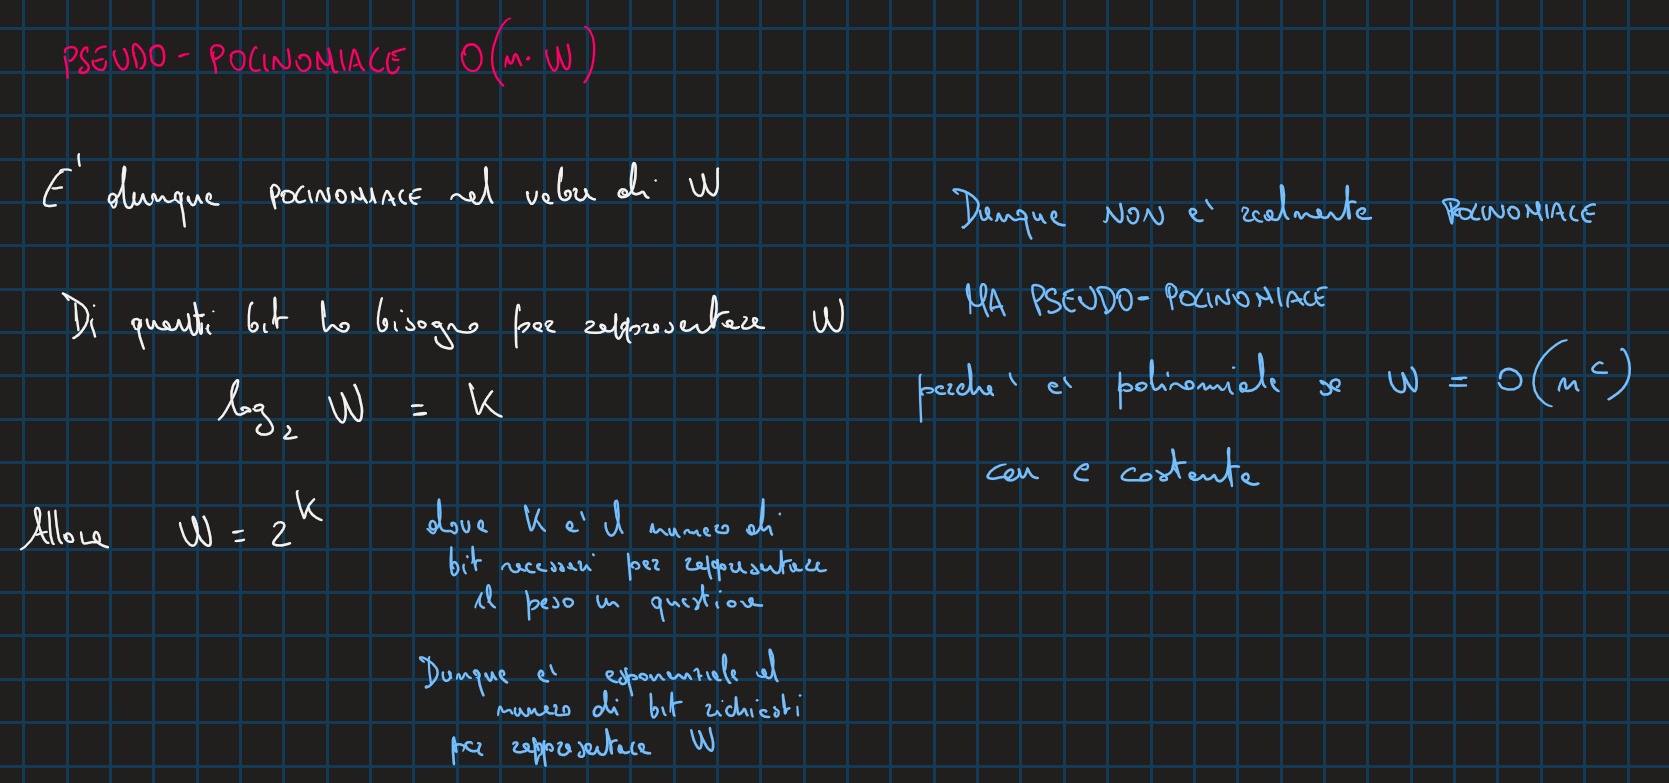 PSEUDO-POLINOMIALE O(n·W)
E' dunque POLINOMIALE nel valore di W
Di quanti bit ho bisogno per rappresentare W
log₂ W = K
Allora W = 2^K
dove K e' il numero di
bit necessari per rappresentare
il peso in questione
Dunque e' esponenziale al
numero di bit richiesti
per rappresentare W
Dunque NON e' realmente POLINOMIALE
MA PSEUDO-POLINOMIALE
perche' e' polinomiale se W = O(n^c)
con c costante